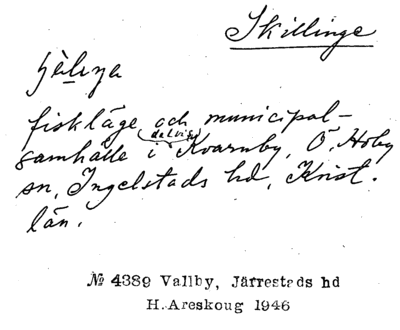 Skillinge
fiskläge och municipal-
(delvis)
samhälle i Kvarnby, Ö. Hoby
sn, Ingelstads hd, Krist.
län.
№ 4389 Vallby, Järrestads hd
H.Areskoug 1946